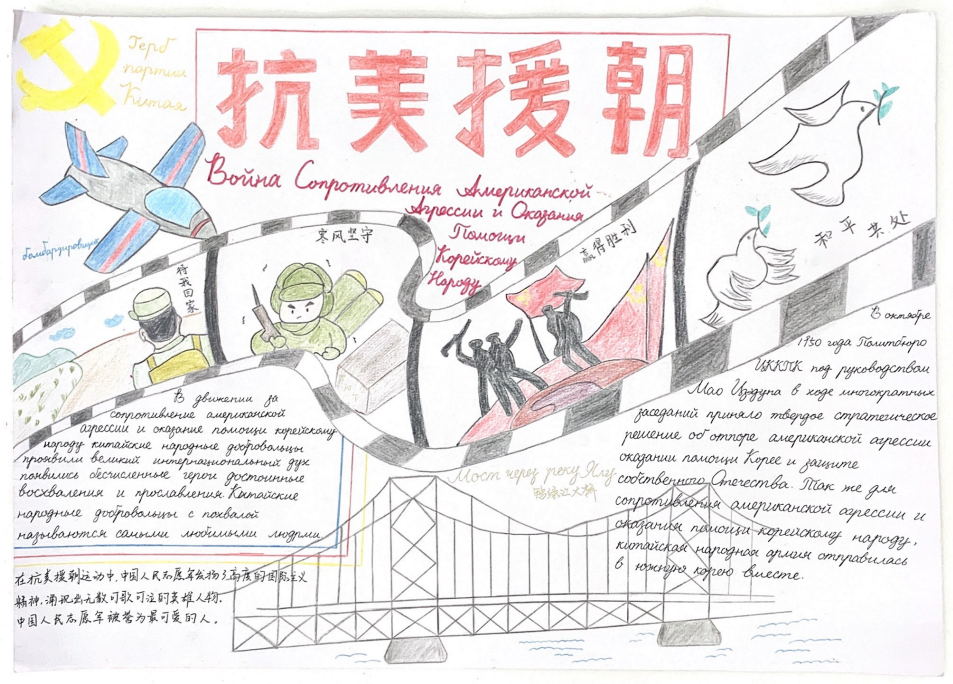 Герб
партии
Китая
抗美援朝
Война Сопротивления Американской
Агрессии и Оказания
Помощи
Корейскому
Народу
бомбардировщик
待我回家
寒风坚守
赢得胜利
和平共处
В движении за
сопротивление американской
агрессии и оказание помощи корейскому
народу китайские народные добровольцы
проявили великий интернациональный дух
появились бесчисленные герои достойные
восхваления и прославления. Китайские
народные добровольцы с похвалой
называются самыми любимыми людьми.
在抗美援朝运动中,中国人民志愿军发扬了高度的国际主义
精神,涌现出无数可歌可泣的英雄人物.
中国人民志愿军被誉为最可爱的人.
Мост через реку Ялу
鸭绿江大桥
В октябре
1950 года Политбюро
ЦККПК под руководством
Мао Цзэдуна в ходе многократных
заседаний приняло твердое стратегическое
решение об отпоре американской агрессии
оказании помощи Корее и защите
собственного Отечества. Так же для
сопротивления американской агрессии и
оказания помощи корейскому народу,
китайская народная армия отправилась
в южную корею вместе.